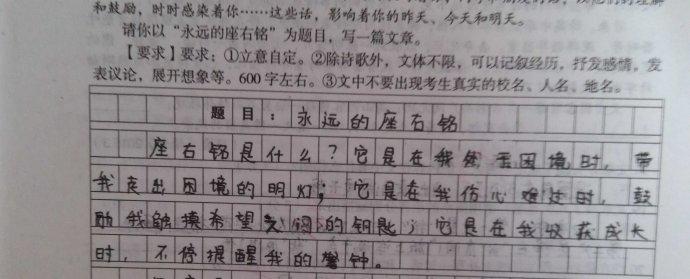 和鼓励，时时感染着你……这些话，影响着你的昨天、今天和明天。
请你以“永远的座右铭”为题目，写一篇文章。
【要求】要求：①立意自定。②除诗歌外，文体不限，可以记叙经历，抒发感情，发
表议论，展开想象等。600字左右。③文中不要出现考生真实的校名、人名、地名。
题目：永远的座右铭
座右铭是什么？它是在我身困境时，带
我走出困境的明灯；它是在我伤心难过时，鼓
励我触摸希望之门的钥匙；它是在我收获成长
时，不停提醒我的警钟。